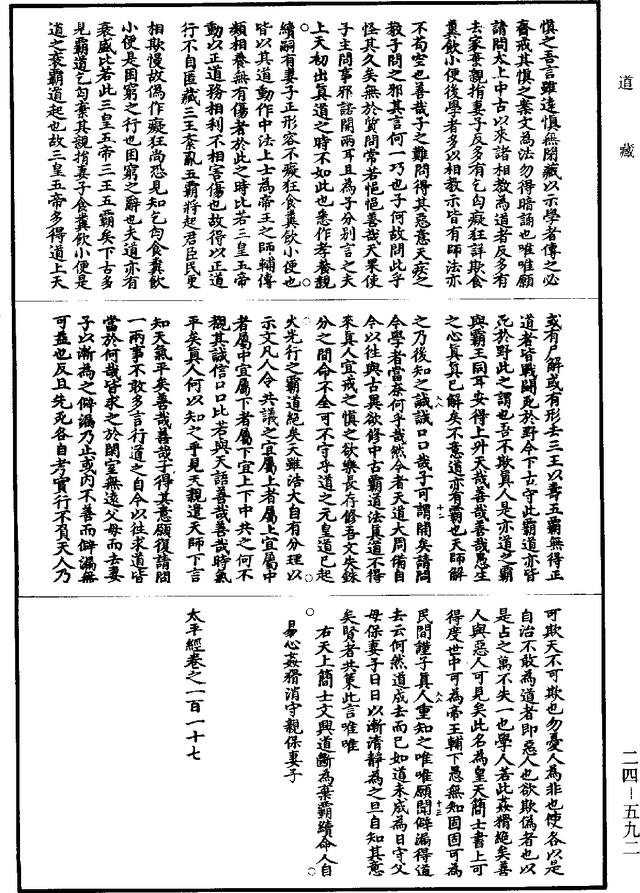 道藏
慎之吾言雖遠慎無閉藏以示學者傳之必
齋戒其慎之案文為法勿得暗誦也唯唯願
請問太上中古以來諸相教為道者反多有
去家棄親捐妻子反多有乞匄癡狂詳欺食
糞飲小便後學者多以相教示皆有師法亦
不苟空也善哉子之難問得其惡意天疾之
教子問之邪其言何一巧也子何故問此乎
怪其久矣無於質問常若悒悒善哉天果使
子主問事邪諾開兩耳且為子分別言之夫
上天初出真道之時不如此也悉作孝養親
續嗣有妻子正形容不癡狂食糞飲小便也
皆以其道動作中法上士為帝王之師輔傅
類相養無有傷者於此之時比若三皇五帝
動以正道務相利不相害傷也故得以正道
行不自匿藏三王紊亂五霸將起君臣民更
相欺慢故偽作癡狂尚恐見知乞匄食糞飲
小便是困窮之行也困窮之辭也夫道亦有
衰盛比若此三皇五帝三王五霸矣下古多
見霸道乞匄棄其親捐妻子食糞飲小便是
道之衰霸道起也故三皇五帝多得道上天
或有尸解或有形去三王以壽五霸無得正
道者皆戰鬪死於野今下古守此霸道亦皆
死於野此之謂也吾不欺真人是亦道之霸
與霸王同耳安得上升天哉善哉善哉愚生
之心真真已解矣不意道亦有霸也天師解
之乃後知之誠誠□□哉子可謂開矣請問
今學者當奈何乎哉然今者天道大周備自
今以往與古異欲修中古霸道法真道不得
來真人宜戒之慎之欲樂長存修吾文失銖
分之間命不全可不守乎道之元皇道已起
火先行之霸道絕矣天雖浩大自有分理以
示文凡人令共議之宜屬上者屬上宜屬中
者屬中宜屬下者屬下宜上下中共之何不
觀其誠信□□比若與天語善哉善哉時氣
平矣真人何以知之乎見天親遣天師下言
知天氣平矣善哉善哉子得其意願復請問
一兩事不敢多言行道之自今以往求道皆
當於何哉皆求之於閑室無遠父母而去妻
子以漸為之僻漏乃止或內不善而僻漏無
可益也反且先死各自考實行不負天人乃
可欺天不可欺也勿憂人為非也使各以是
自治不敢為道者即惡人也欲欺偽者也以
是占之萬不失一也學人若此姦猾絕矣善
人與惡人可見矣此名為皇天簡士書上可
得度世中可為帝王輔下愚無知固固可為
民間謹子真人重知之唯唯願聞僻漏得道
去云何然道成去而已如道未成為日守父
母保妻子日日以漸清靜為之且自知其意
矣賢者共策此言唯唯
右天上簡士文與道斷為棄霸續命人自
易心姦猾消守親保妻子
太平經卷之一百一十七
二四－五九二